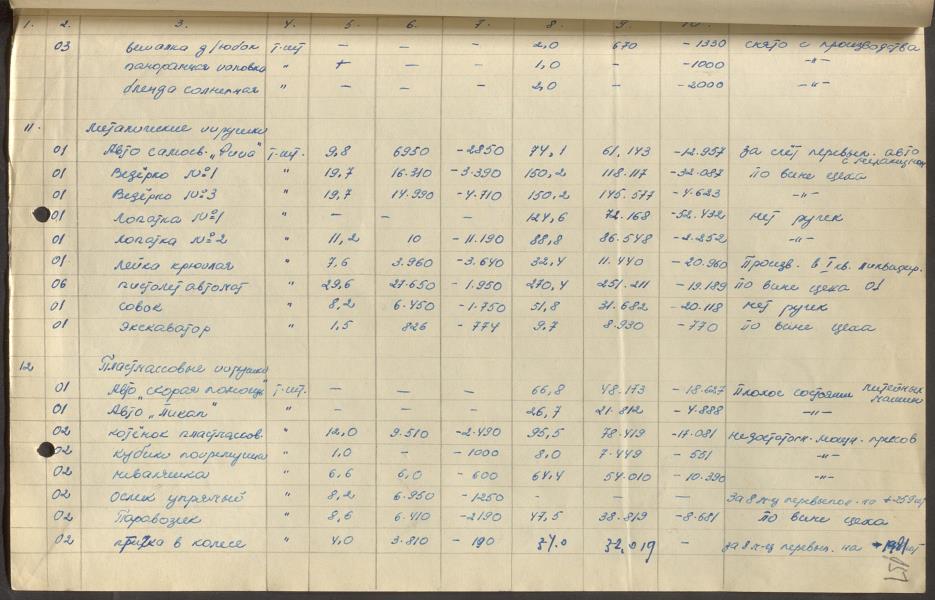 1. 2. 3. 4. 5. 6. 7. 8. 9. 10.
03 вешалка д/юбок т-шт — — — 2,0 670 -1330 снято с производства
панорамная головка " + — — 1,0 — -1000 -"-
бленда солнечная " — — - 2,0 — -2000 -"-
11. Металические игрушки
01 Авто самосв. т-шт. 9,8 6950 -2850 74,1 61,143 -12.957 за счёт перевып. авто
с механизмом
01 Ведёрко №1 " 19,7 16.310 -3.390 150,2 118.117 -32.087 по вине цеха
01 Ведёрко №3 " 19,7 14.990 -4.710 150,2 145.577 -4.623 -"-
01 Лопатка №1 " — — - 124,6 72.168 -52.432 нет ручек
01 Лопатка №2 " 11,2 10 -11.190 88,8 86.548 -2.252 -"-
01 Лейка круглая " 7,6 3.960 -3.640 32,4 11.440 -20.960 Произв. в I кв.
06 пистолет автомат " 29,6 27.650 -1.950 270,4 251.211 -19.189 по вине цеха 01
01 совок " 8,2 6.450 -1.750 51,8 31.682 -20.118 нет ручек
01 экскаватор " 1,5 826 -774 9,7 8.930 -770 по вине цеха
12 Пластмассовые игрушки
01 Авто „скорая помощь" т-шт. — — - 66,8 48.173 -18.627 плохое состояние литейных
машин
01 Авто „пикап" " — — - 26,7 21.812 -4.888 -"-
02 котёнок пластмассов. " 12,0 9.510 -2.490 95,5 78.419 -17.081 недостаточн. мощн. прессов
02 кубики погремушка " 1,0 - -1000 8,0 7.449 -551 -"-
02 неваляшка " 6,6 6,0 -600 64,4 54.010 -10.390 -"-
02 Ослик упрямый " 8,2 6.950 -1250 - — — за 8 м-ц перевыпол. на
02 Паровозик " 8,6 6.410 -2190 47,5 38.819 -8.681 по вине цеха
02 в колесе " 4,0 3.810 -190 32.019 — за 8 м-ц перевып. на